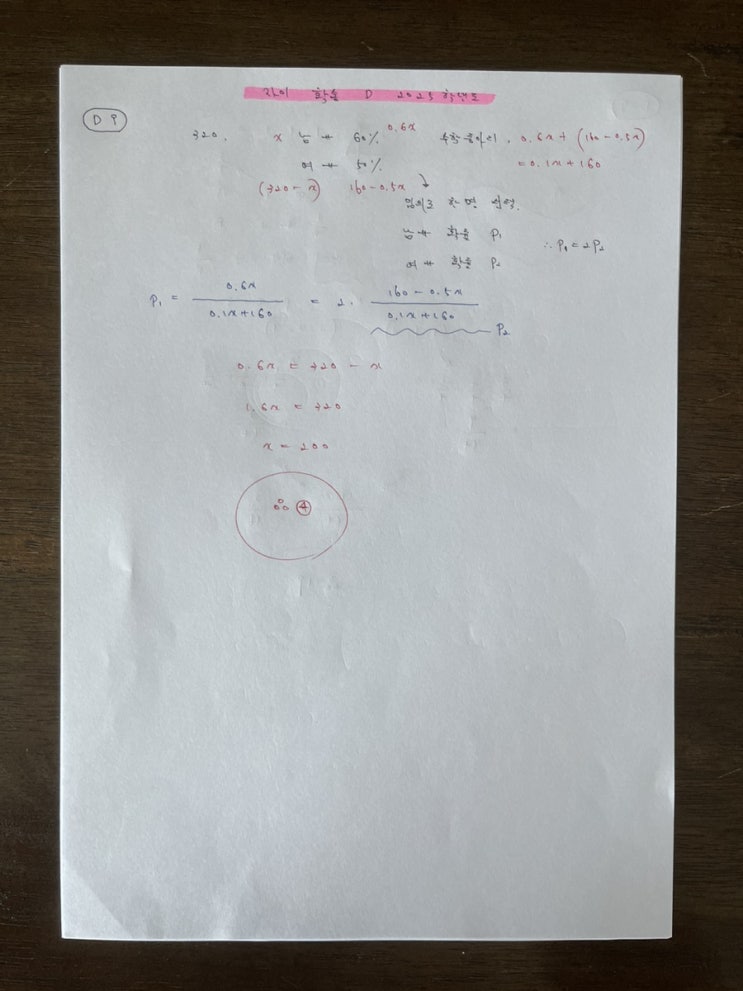 자이 확통 D 2025학년도
D 9
320. x 남학 60% 0.6x 수학동아리. 0.6x + (160-0.5x)
여학 50% = 0.1x+160
(320-x) 160-0.5x
임의로 한 명 선택.
남학 확률 P₁
∴ P₁=2P₂
여학 확률 P₂
P₁ = 0.6x / 0.1x+160 = 2. 160-0.5x / 0.1x+160 P₂
0.6x = 320 - x
1.6x = 320
x = 200
④